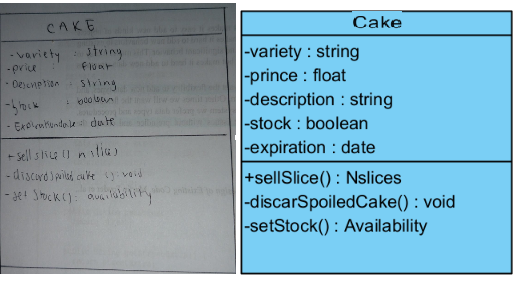 CAKE
-variety : string
-price : float
-Description : string
-Stock : boolean
-Expirationdate : date
+sellslice() nslices
-discardspoiledcake () : void
-set Stock() : availability
Cake
-variety : string
-prince : float
-description : string
-stock : boolean
-expiration : date
+sellSlice() : Nslices
-discarSpoiledCake() : void
-setStock() : Availability